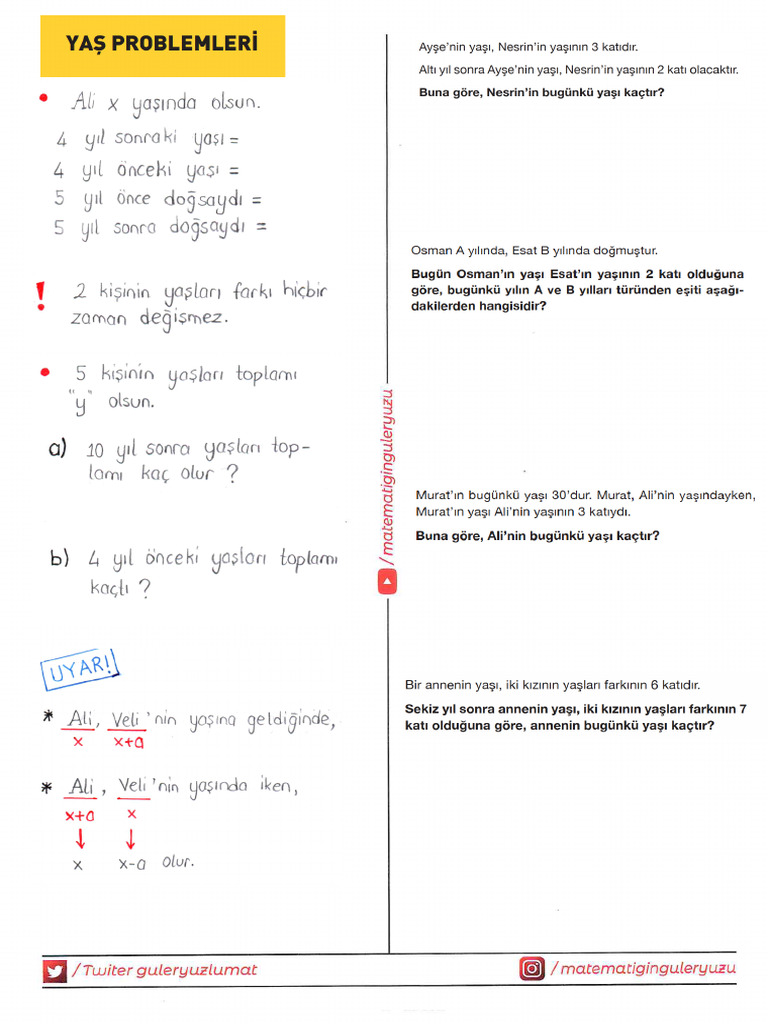 YAŞ PROBLEMLERİ
• Ali x yaşında olsun.
4 yıl sonraki yaşı =
4 yıl önceki yaşı =
5 yıl önce doğsaydı =
5 yıl sonra doğsaydı =
! 2 kişinin yaşları farkı hiçbir
zaman değişmez.
• 5 kişinin yaşları toplamı
"y" olsun.
a) 10 yıl sonra yaşları top-
lamı kaç olur ?
b) 4 yıl önceki yaşları toplamı
kaçtı ?
UYARI!
* Ali, Veli'nin yaşına geldiğinde,
x x+a
* Ali, Veli'nin yaşında iken,
x+a x
↓ ↓
x x-a olur.
/matematiginguleryuzu
Ayşe'nin yaşı, Nesrin'in yaşının 3 katıdır.
Altı yıl sonra Ayşe'nin yaşı, Nesrin'in yaşının 2 katı olacaktır.
Buna göre, Nesrin'in bugünkü yaşı kaçtır?
Osman A yılında, Esat B yılında doğmuştur.
Bugün Osman'ın yaşı Esat'ın yaşının 2 katı olduğuna
göre, bugünkü yılın A ve B yılları türünden eşiti aşağı-
dakilerden hangisidir?
Murat'ın bugünkü yaşı 30'dur. Murat, Ali'nin yaşındayken,
Murat'ın yaşı Ali'nin yaşının 3 katıydı.
Buna göre, Ali'nin bugünkü yaşı kaçtır?
Bir annenin yaşı, iki kızının yaşları farkının 6 katıdır.
Sekiz yıl sonra annenin yaşı, iki kızının yaşları farkının 7
katı olduğuna göre, annenin bugünkü yaşı kaçtır?
/Twiter guleryuzlumat
/matematiginguleryuzu